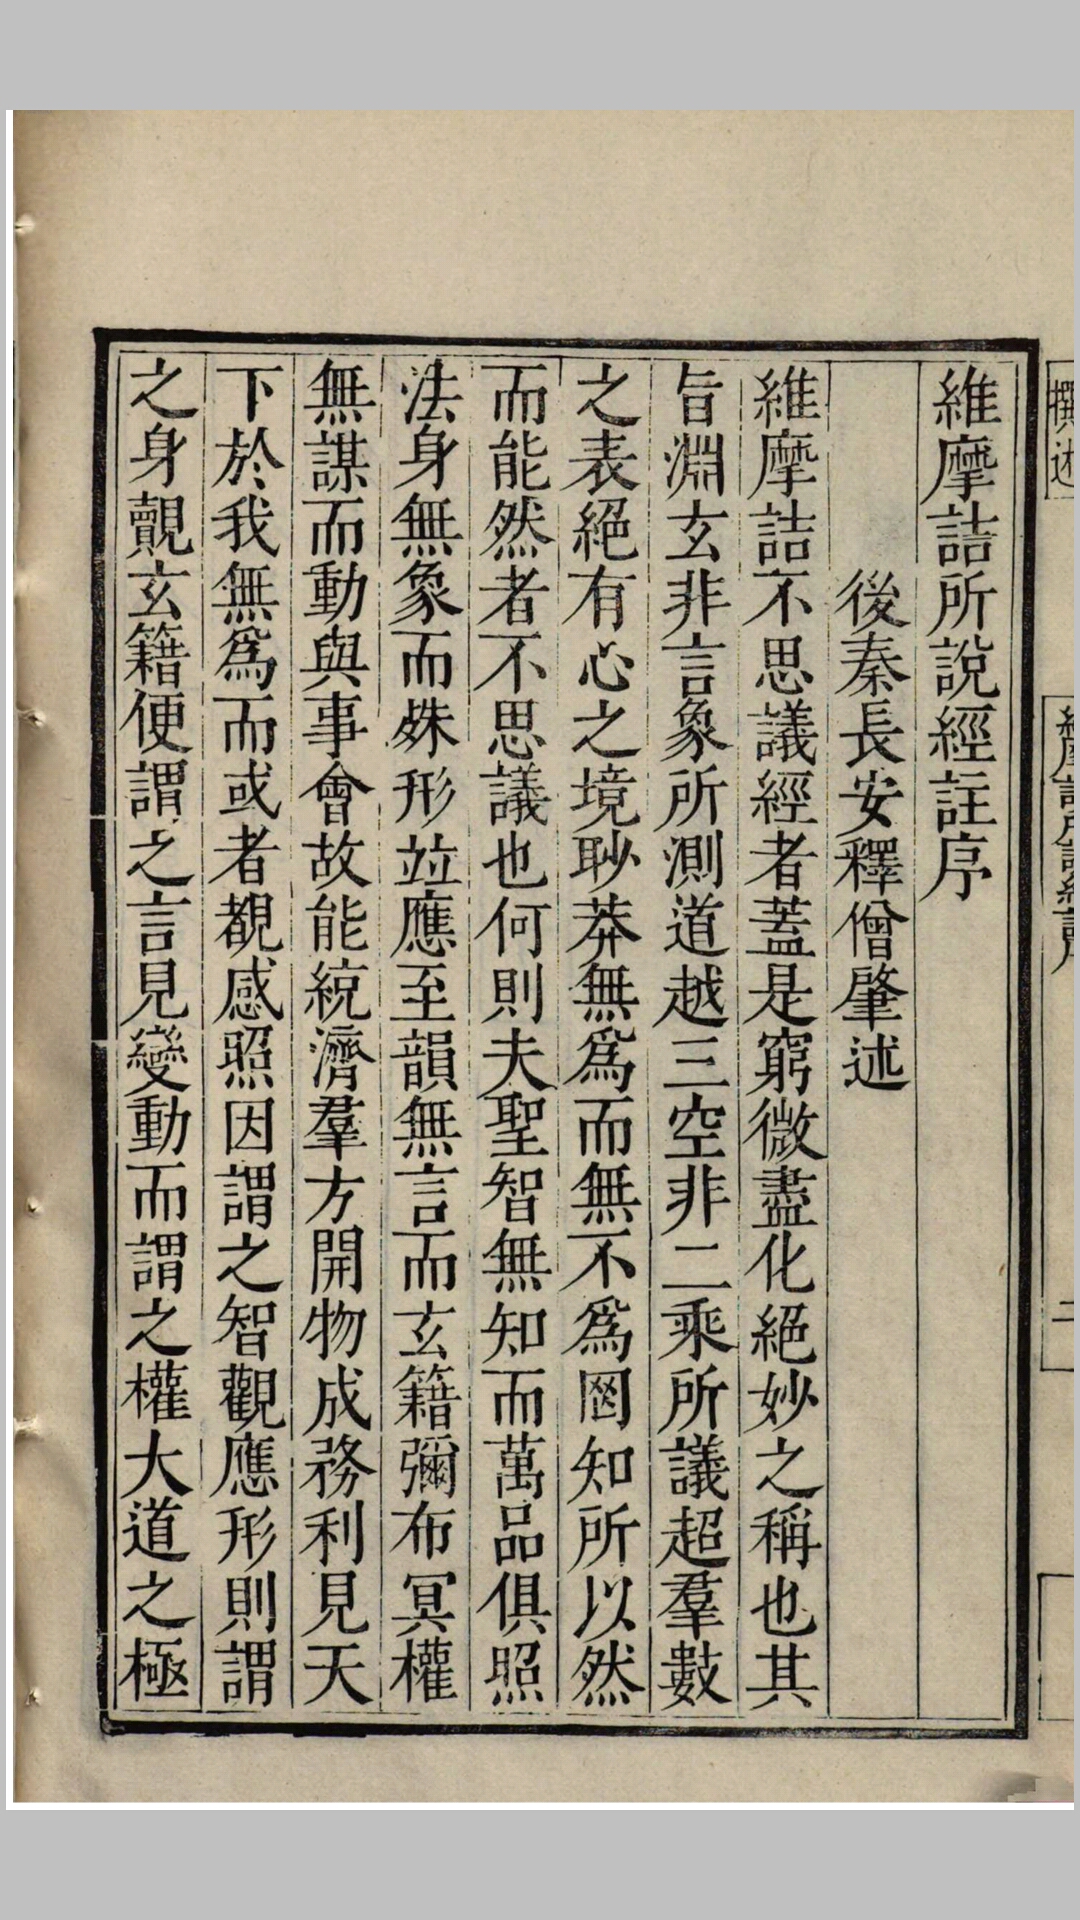 維摩詰所說經註序
後秦長安釋僧肇述
維摩詰不思議經者蓋是窮微盡化絕妙之稱也其
旨淵玄非言象所測道越三空非二乘所議超羣數
之表絕有心之境眇莽無爲而無不爲罔知所以然
而能然者不思議也何則夫聖智無知而萬品俱照
法身無象而殊形並應至韻無言而玄籍彌布冥權
無謀而動與事會故能統濟羣方開物成務利見天
下於我無爲而或者覩感照因謂之智觀應形則謂
之身覿玄籍便謂之言見變動而謂之權大道之極